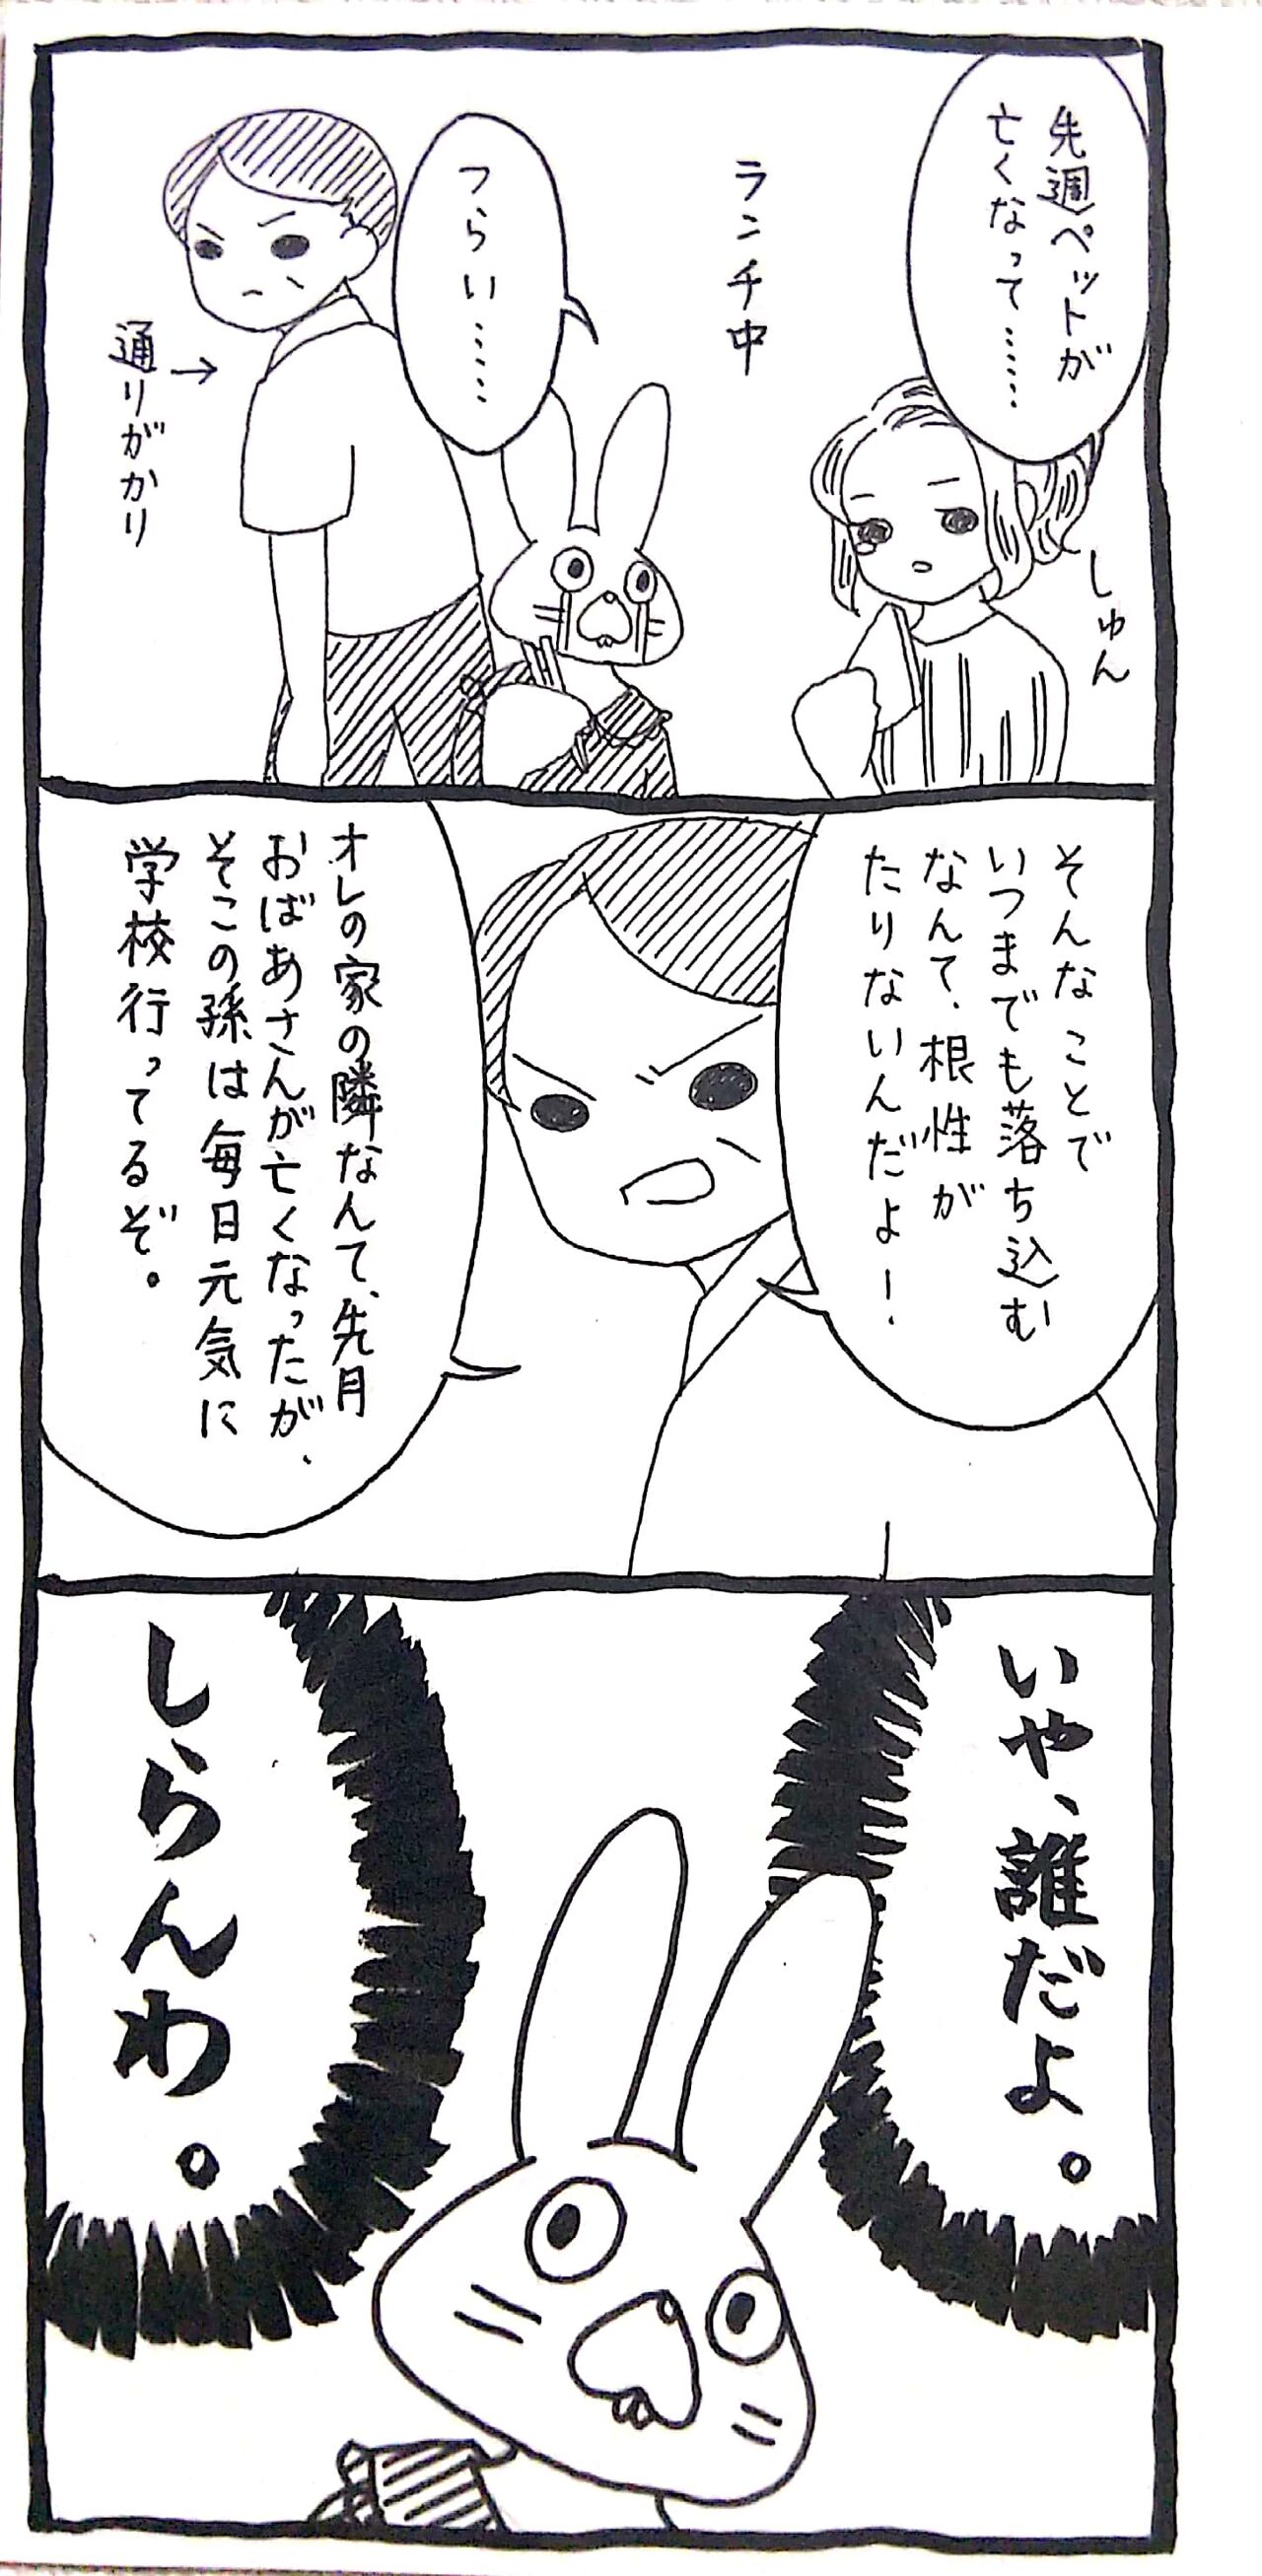 先週ペットが
亡くなって……
しゅん
ランチ中
つらい……
通りがかり
→
そんなことで
いつまでも落ち込む
なんて、根性が
たりないんだよ！
オレの家の隣なんて、先月
おばあさんが亡くなったが、
そこの孫は毎日元気に
学校行ってるぞ。
いや、誰だよ。
しらんわ。